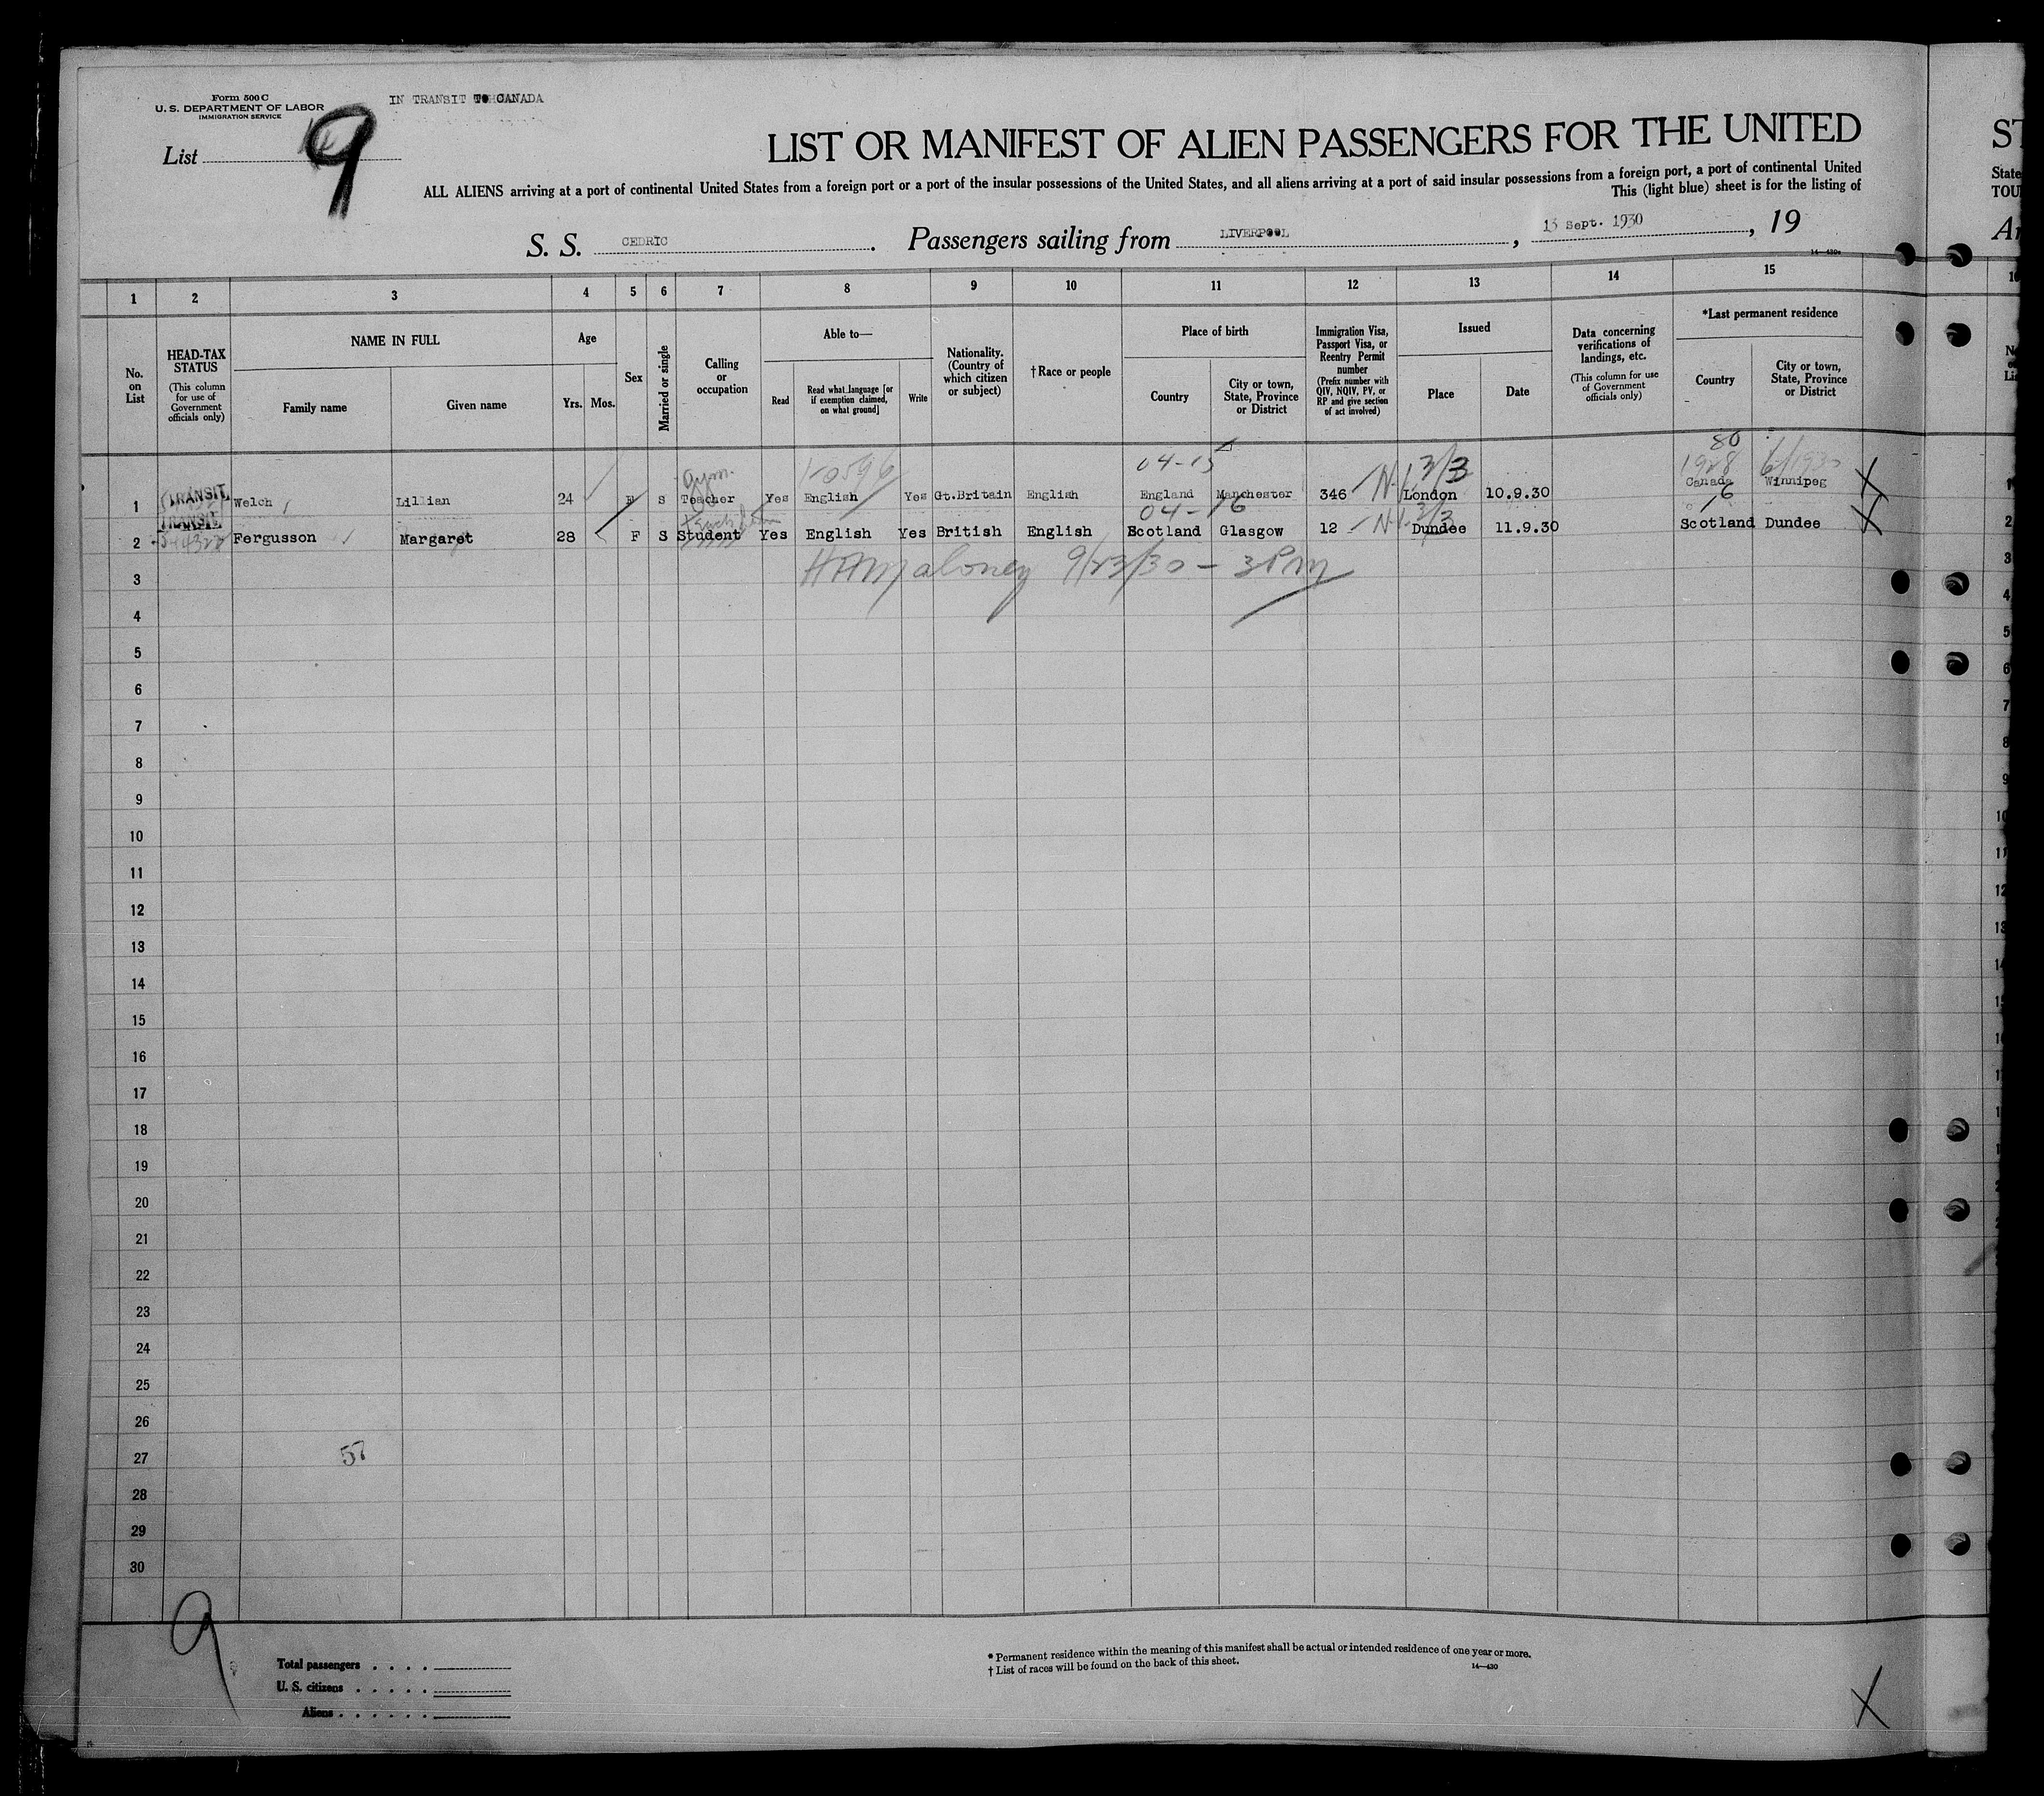 Form 500 C
U. S. DEPARTMENT OF LABOR
IMMIGRATION SERVICE
IN TRANSIT TO CANADA
List 9
LIST OR MANIFEST OF ALIEN PASSENGERS FOR THE UNITED
ALL ALIENS arriving at a port of continental United States from a foreign port or a port of the insular possessions of the United States, and all aliens arriving at a port of said insular possessions from a foreign port, a port of continental United
This (light blue) sheet is for the listing of
S. S. CEDRIC. Passengers sailing from LIVERPOOL, 13 Sept. 1930, 19
14—430
1 2 3 4 5 6 7 8 9 10 11 12 13 14 15
No. on List
HEAD-TAX STATUS
(This column for use of Government officials only)
NAME IN FULL
Family name
Given name
Age
Yrs. Mos.
Sex
Married or single
Calling or occupation
Able to—
Read
Read what language [or if exemption claimed, on what ground]
Write
Nationality. (Country of which citizen or subject)
†Race or people
Place of birth
Country
City or town, State, Province or District
Immigration Visa, Passport Visa, or Reentry Permit number
(Prefix number with QIV, NQIV, PV, or RP and give section of act involved)
Issued
Place
Date
Data concerning verifications of landings, etc.
(This column for use of Government officials only)
*Last permanent residence
Country
City or town, State, Province or District
Gym. 04-15 3/3 80
1928 6/1930
1 TRANSIT Welch Lillian 24 F S Teacher Yes English Yes Gt.Britain English England Manchester 346 London 10.9.30 Canada Winnipeg
04-16 3/3 16
2 TRANSIT Fergusson Margaret 28 F S Student Yes English Yes British English Scotland Glasgow 12 Dundee 11.9.30 Scotland Dundee
3
HAMaloney 9/23/30 - 3PM
4
5
6
7
8
9
10
11
12
13
14
15
16
17
18
19
20
21
22
23
24
25
26
27
57
28
29
30
9
Total passengers
U. S. citizens
Aliens
* Permanent residence within the meaning of this manifest shall be actual or intended residence of one year or more.
† List of races will be found on the back of this sheet.
14—430
X
ST
State
TOU